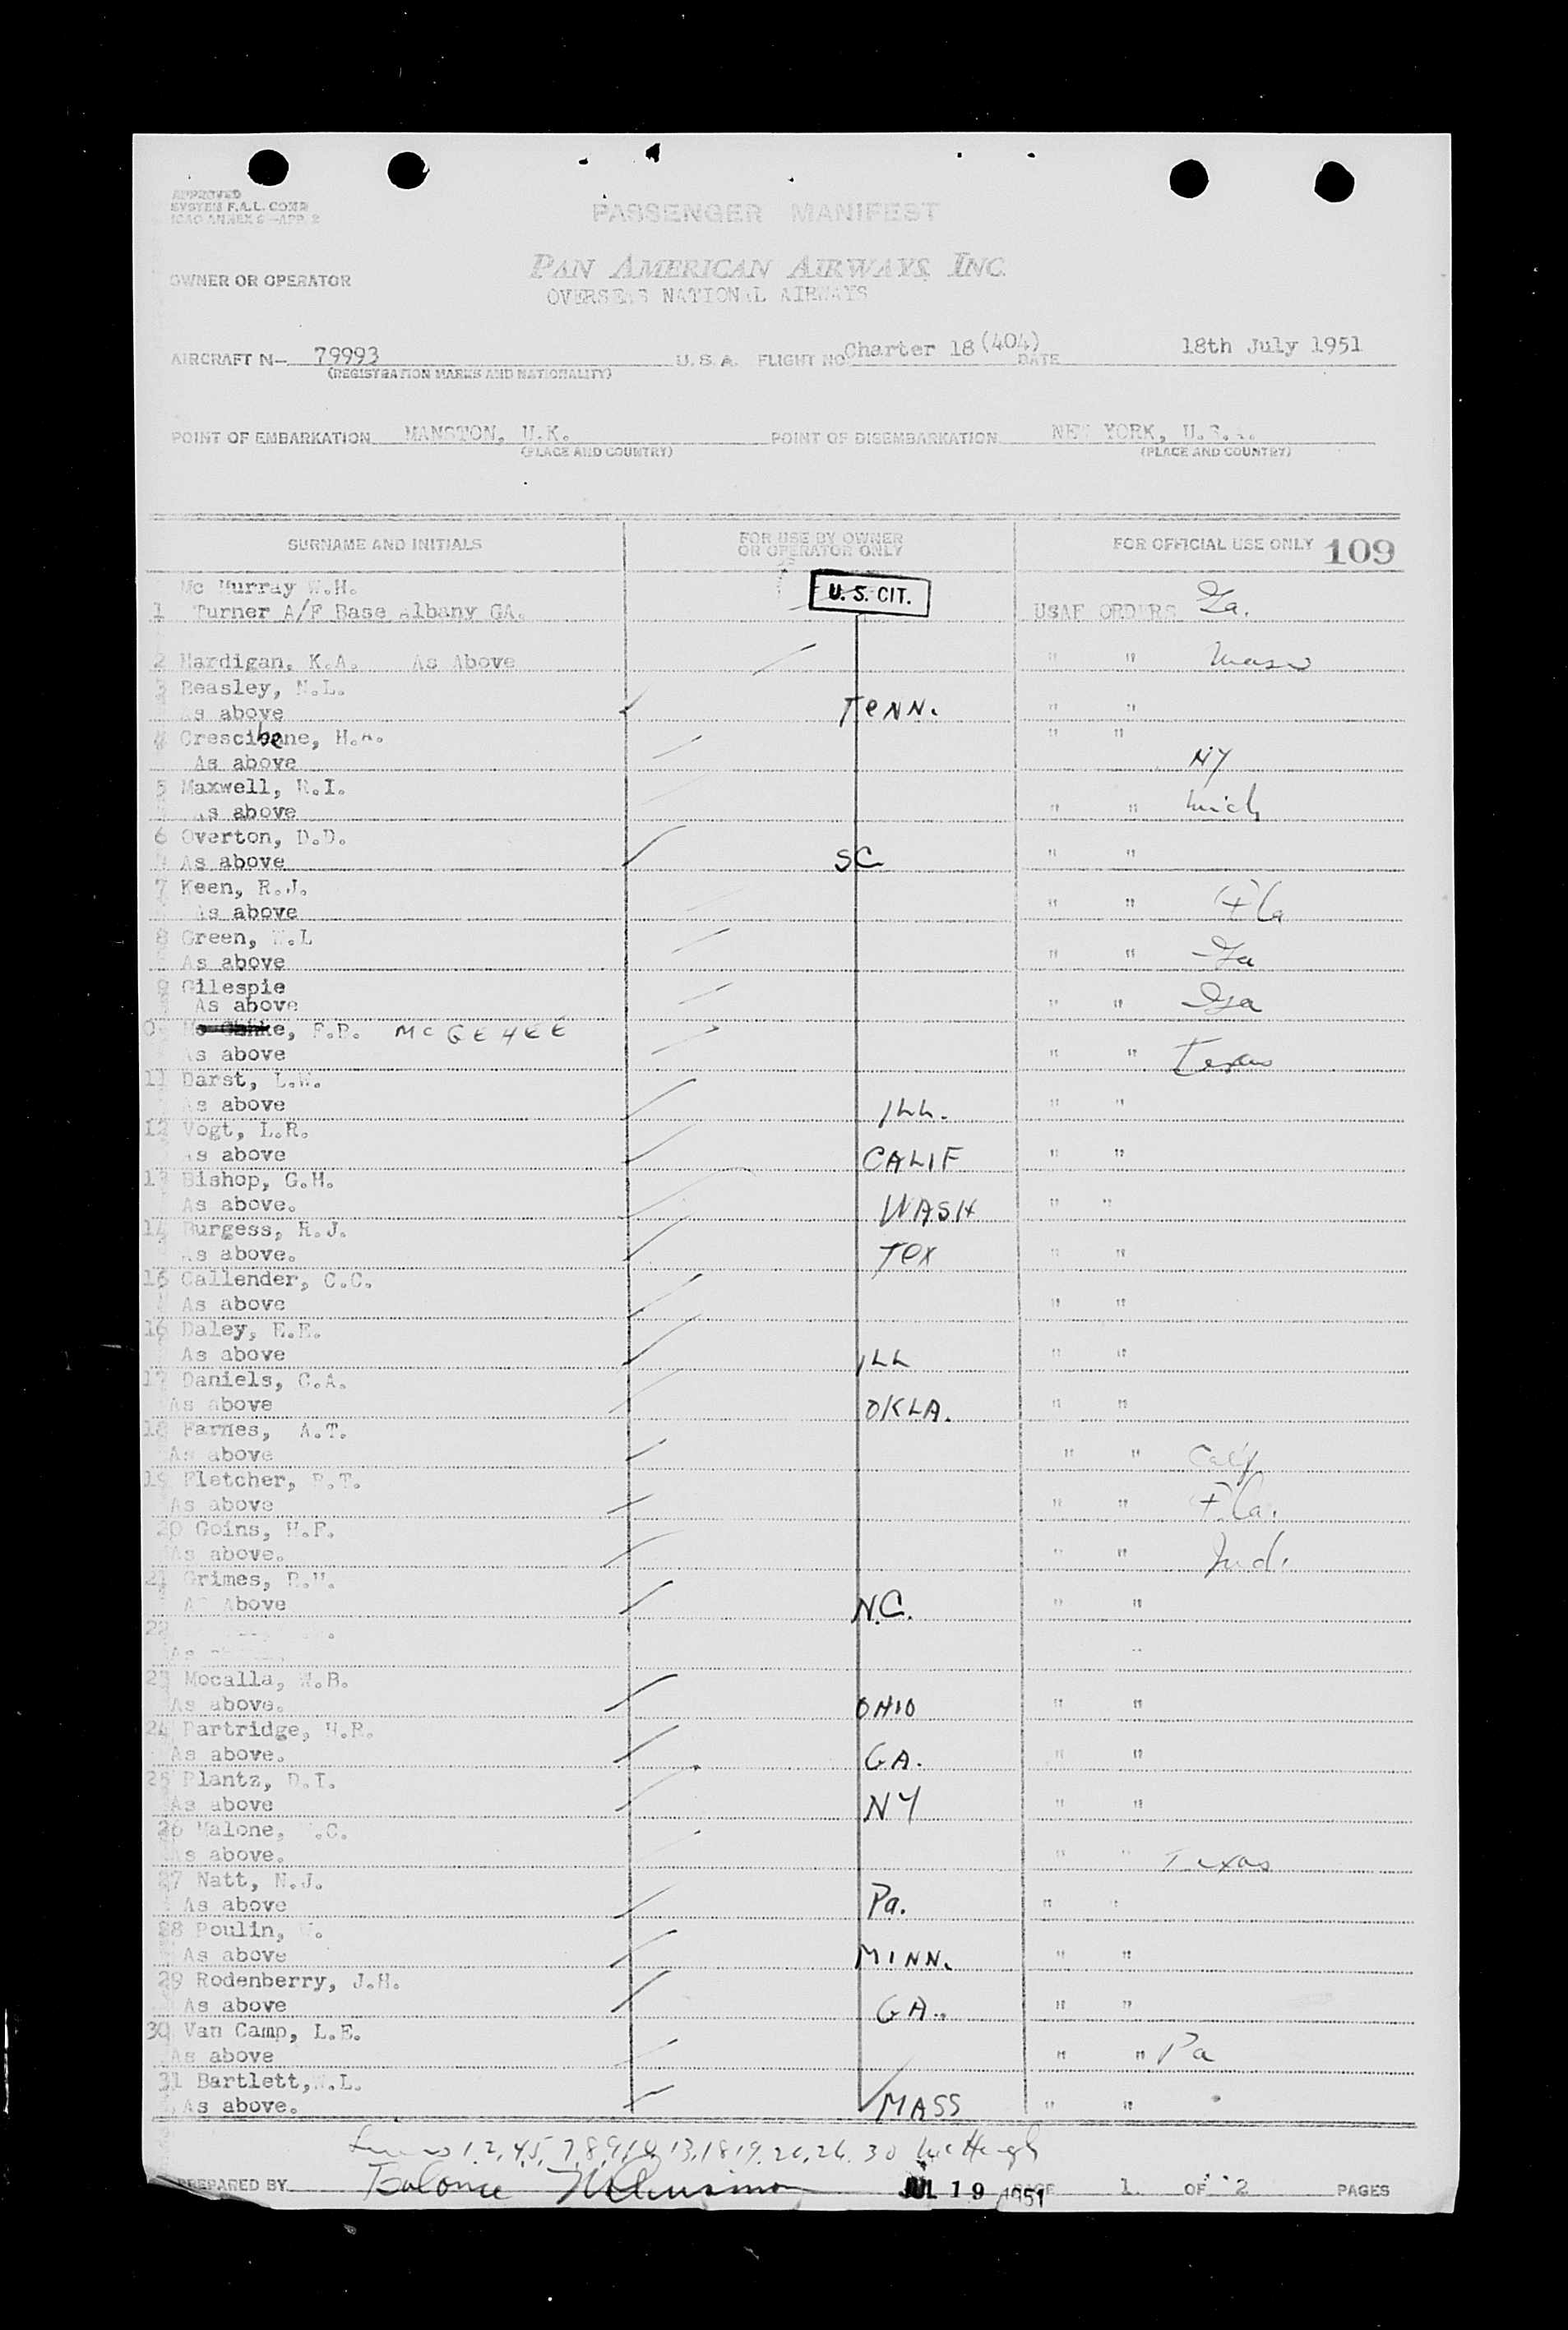 APPROVED
SYSTEM F.A.L. COMR
ICAO ANNEX 9 -APP. 2
PASSENGER MANIFEST
OWNER OR OPERATOR
PAN AMERICAN AIRWAYS, INC.
OVERSEAS NATIONAL AIRWAYS
AIRCRAFT N- 79993 U. S. A. FLIGHT NO Charter 18 (404) DATE 18th July 1951
(REGISTRATION MARKS AND NATIONALITY)
POINT OF EMBARKATION MANSTON, U.K. POINT OF DISEMBARKATION NEW YORK, U.S.A.
(PLACE AND COUNTRY) (PLACE AND COUNTRY)
SURNAME AND INITIALS FOR USE BY OWNER OR OPERATOR ONLY FOR OFFICIAL USE ONLY 109
Mc Murray W.H.
1 Turner A/F Base Albany GA. U. S. CIT. USAF ORDERS Ga.
2 Hardigan, K.A. As Above " " Mass
3 Beasley, N.L.
As above TENN. " "
4 Crescibene, H.A. " "
As above NY
5 Maxwell, R.I.
As above " " Mich
6 Overton, D.D.
As above SC " "
7 Keen, R.J.
As above " " Fla
8 Green, L
As above " " Ga
9 Gilespie
As above " " Ga
0 F.P. McGEHEE
As above " " Texas
11 Darst, L.W.
As above ILL. " "
12 Vogt, L.R.
As above CALIF " "
13 Bishop, G.H.
As above. WASH " "
14 Burgess, R.J.
As above. TEX " "
15 Callender, C.C.
As above " "
16 Daley, E.E.
As above ILL " "
17 Daniels, C.A.
As above OKLA. " "
18 Farnes, A.T.
As above " " Calif
19 Fletcher, R.T.
As above " " Fla.
20 Goins, H.F.
As above. " " Ind.
21 Grimes, R.W.
As Above N.C. " "
22
As
23 Mocalla, W.B.
As above. OHIO " "
24 Partridge, H.R.
As above. GA. " "
25 Plantz, D.I.
As above NY " "
26 Malone, .C.
As above. " " Texas
27 Natt, N.J.
As above Pa. " "
28 Poulin, .
As above MINN. " "
29 Rodenberry, J.H.
As above GA. " "
30 Van Camp, L.E.
As above " " Pa
31 Bartlett, W.L.
As above. MASS " "
1, 2, 4, 5, 7, 8, 9, 10, 13, 18 19. 20, 26. 30 McHugh
PREPARED BY Balance JUL 19 1951 PAGE 1. OF 2 PAGES